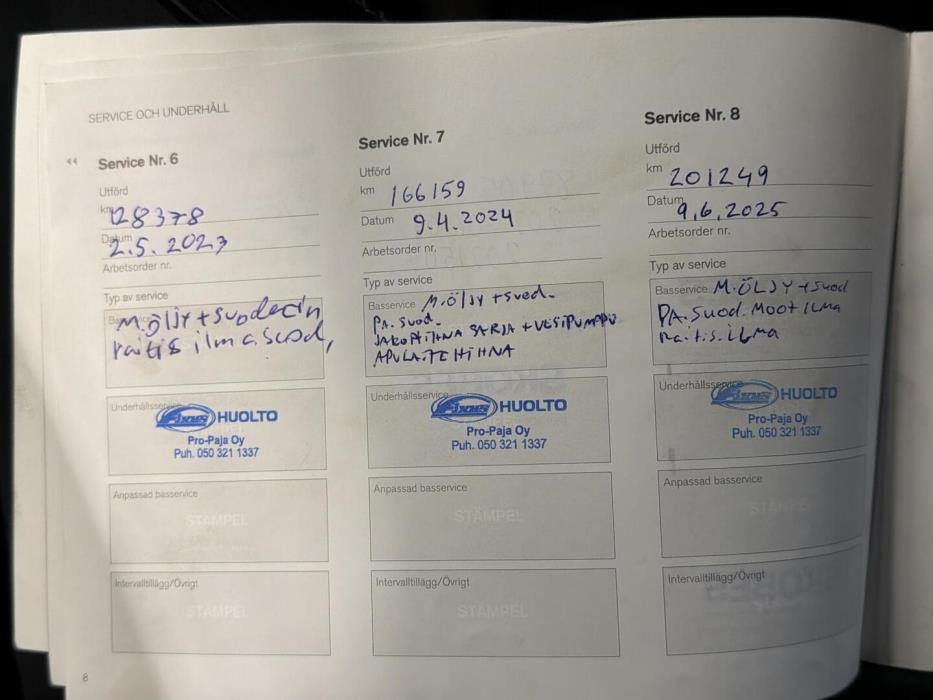 SERVICE OCH UNDERHÅLL
Service Nr. 6
Utförd
km 128378
Datum 2.5.2023
Arbetsorder nr.
Typ av service
Basservice
M.ÖLJY + suodatin
raitis ilma suod,
Underhållsservice
Fixus HUOLTO
Pro-Paja Oy
Puh. 050 321 1337
Anpassad basservice
STÄMPEL
Intervalltillägg/Övrigt
STÄMPEL
8
Service Nr. 7
Utförd
km 166159
Datum 9.4.2024
Arbetsorder nr.
Typ av service
Basservice M.ÖLJY + suod.
PA. suod.
JAKOHIHNA SARJA + VESIPUMPPU
APULAITE HIHNA
Underhållsservice
Fixus HUOLTO
Pro-Paja Oy
Puh. 050 321 1337
Anpassad basservice
STÄMPEL
Intervalltillägg/Övrigt
STÄMPEL
Service Nr. 8
Utförd
km 201249
Datum 9.6.2025
Arbetsorder nr.
Typ av service
Basservice M.ÖLJY + suod
PA. suod. MOOT ILMA
raitis.ilma
Underhållsservice
Fixus HUOLTO
Pro-Paja Oy
Puh. 050 321 1337
Anpassad basservice
STÄMPEL
Intervalltillägg/Övrigt